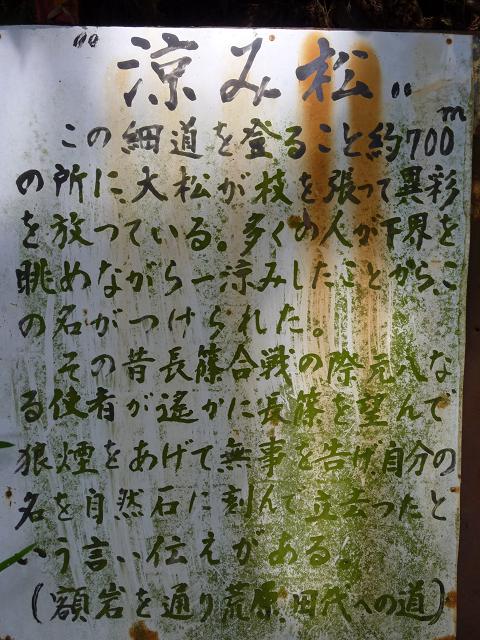 "涼み松"
この細道を登ること約700m
の所に、大松が枝を張って異彩
を放っている。多くの人が下界を
眺めながら一涼みしたことから、こ
の名がつけられた。
その昔長篠合戦の際元八な
る使者が遙かに長篠を望んで
狼煙をあげて無事を告げ自分の
名を自然石に刻んで立去ったと
いう言い伝えがある。
(額岩を通り荒原、田代への道)